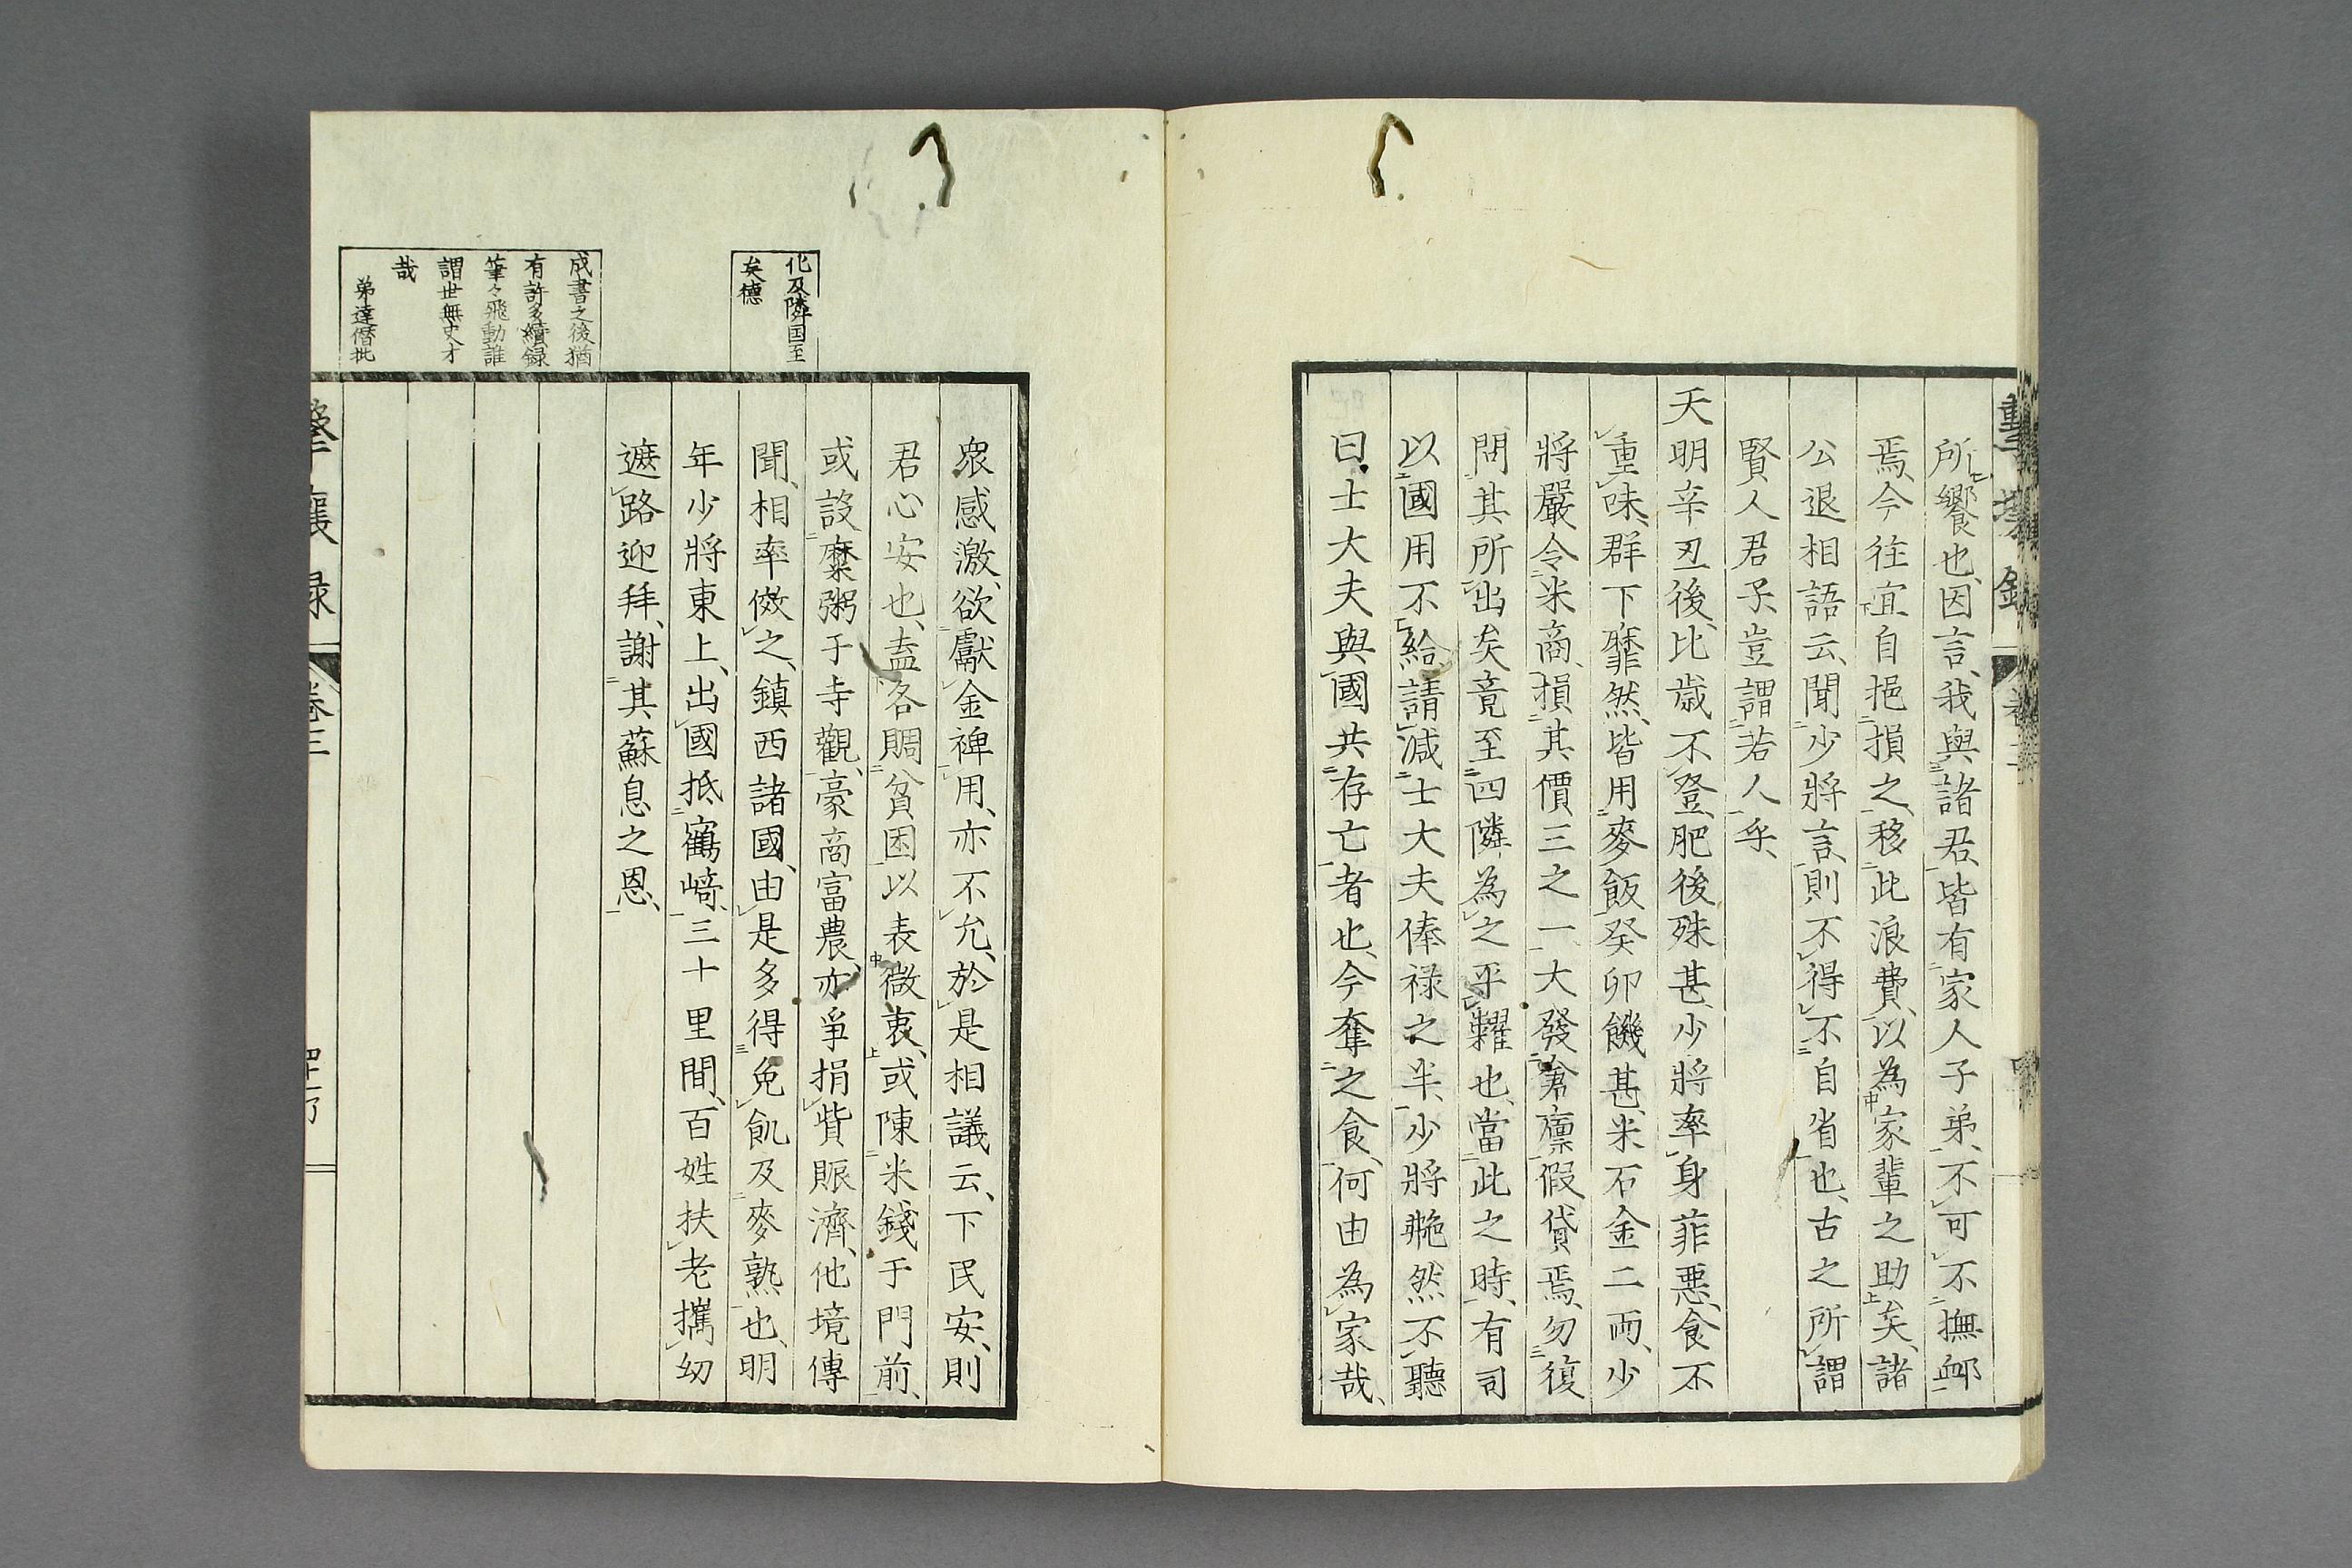 所饗也、因言、我與諸君、皆有家人子弟、不可不撫䘏
焉、今往宜自挹損之、移此浪費、以為家輩之助矣、諸
公退相語云、聞少將言、則不得不自省也、古之所謂
賢人君子、豈謂若人乎、
天明辛丑後、比歲不登、肥後殊甚、少將率身菲惡、食不
重味、群下靡然、皆用麥飯、癸卯饑甚、米石金二兩、少
將嚴令米商、損其價三之一、大發倉廩假貸焉、勿復
問其所出矣、竟至四隣為之平糶也、當此之時、有司
以國用不給、請減士大夫俸祿之半、少將艴然不聽
曰、士大夫與國共存亡者也、今奪之食、何由為家哉、
眾感激、欲獻金裨用、亦不允、於是相議云、下民安、則
君心安也、盍各賙貧困以表微衷、或陳米錢于門前、
或設糜粥于寺觀、豪商富農、亦爭捐貲賑濟、他境傳
聞、相率傚之、鎮西諸國、由是多得免飢及麥熟也、明
年少將東上、出國抵鶴崎、三十里間、百姓扶老攜幼
遮路迎拜、謝其蘇息之恩、
化及隣国至
矣德
成書之後猶
有許多續録
筆々飛動誰
謂世無史才
哉
弟達僭批
擊壤録 卷三